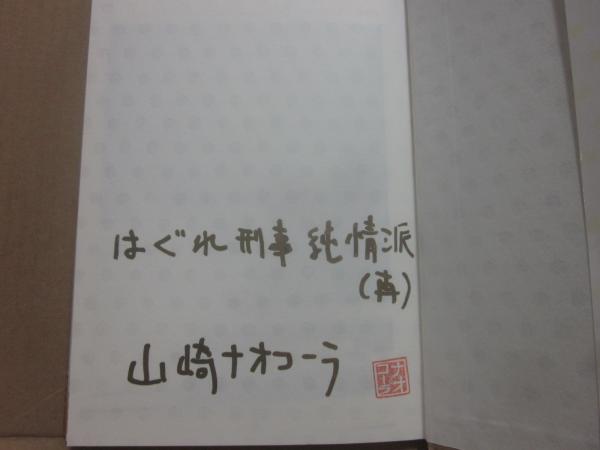 はぐれ刑事純情派
(再)
山崎ナオコーラ
ナオ
コーラ